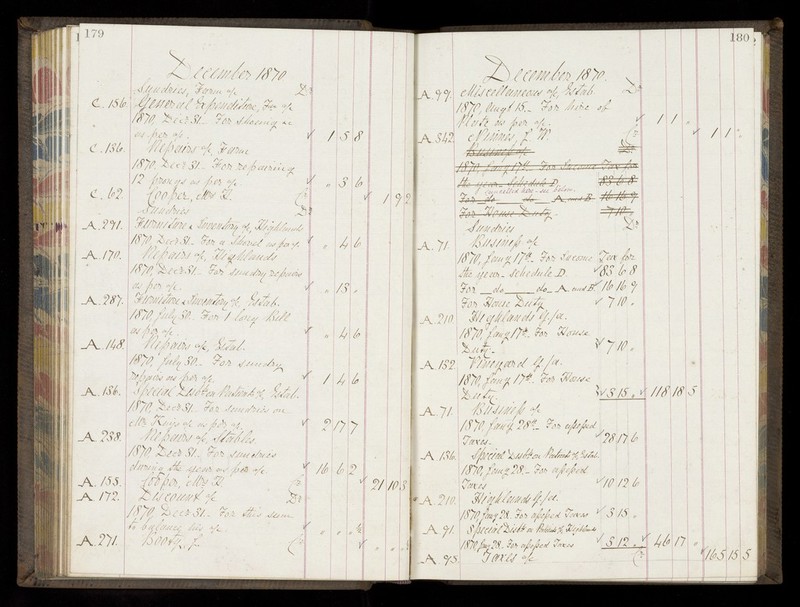 179
December 1870
Sundries, Farm a/c Dr
C. 156. General Expenditure, Fm a/c
1870, Decr 31 - For shoeing &c
as per a/c. 1 5 8
C. 136. Repairs a/c Farm
1870, Decr 31 - For repairing
12 prongs as per a/c " 3 6
C. 62 Cooper, Mrs H. Cr 1 9 2
Sundries Dr
A. 291. Furniture & Inventory a/c, Highlands
1870, Decr 31 - For a shovel as per a/c " 4 6
A. 170. Repairs a/c, Highlands
1870, Decr 31 - For sundry repairs
as per a/c. " 13 "
A. 287. Furniture & Inventory a/c, Estab.
1870, July 30 - For 1 long Bill
as per a/c. " 4 6
A. 148. Repairs a/c, Estab.
1870, July 30 - For sundry
repairs as per a/c 1 4 6
A. 136. Special Distbn Patients a/c, Estab.
1870, Decr 31 - For sundries on
as per a/c 2 17 7
A. 238. Repairs a/c, Stables.
1870, Decr 31 - For sundries
during the year as per a/c 16 6 2
A. 155. Cooper, Mrs H. Cr 21 10 3
A. 172. Discount a/c Dr
1870, Decr 31 - For this sum
to balance his a/c
A. 271. Booth, J. Cr
180
December 1870
A. 99. Miscellaneous a/c, Estab. Dr
1870, Augt 15 - For hire of
as per a/c. 1 1 "
A. 342. Cr 1 1 "
Business a/c Dr
1870, Jany 17th - For Income Tax for
the year - Schedule D. 83 6 8
For do do A. and B. 16 16 9
For House Duty 7 10 "
Sundries Dr
A. 71. Business a/c
1870, Jany 17th - For Income Tax for
the year - Schedule D. 83 6 8
For do do A. and B. 16 16 9
For House Duty 7 10 "
A. 210. Highlands
1870, Jany 17th - For House
Duty 7 10 "
A. 132. Vineyard
1870, Jany 17th - For House
Duty 3 15 " 118 18 5
A. 71. Business a/c
1870, Jany 28th - For assessed
Taxes - 28 17 6
A. 136. Special Distbn on Patients a/c, Estab.
1870, Jany 28 - For assessed
Taxes 10 12 6
A. 210. Highlands
1870, Jany 28. For assessed Taxes 3 15 "
A. 91. Special Distbn on Patients a/c, Highlands
1870, Jany 28. For assessed Taxes 3 12 " 46 17 "
A. 95. Taxes a/c Cr 165 15 5